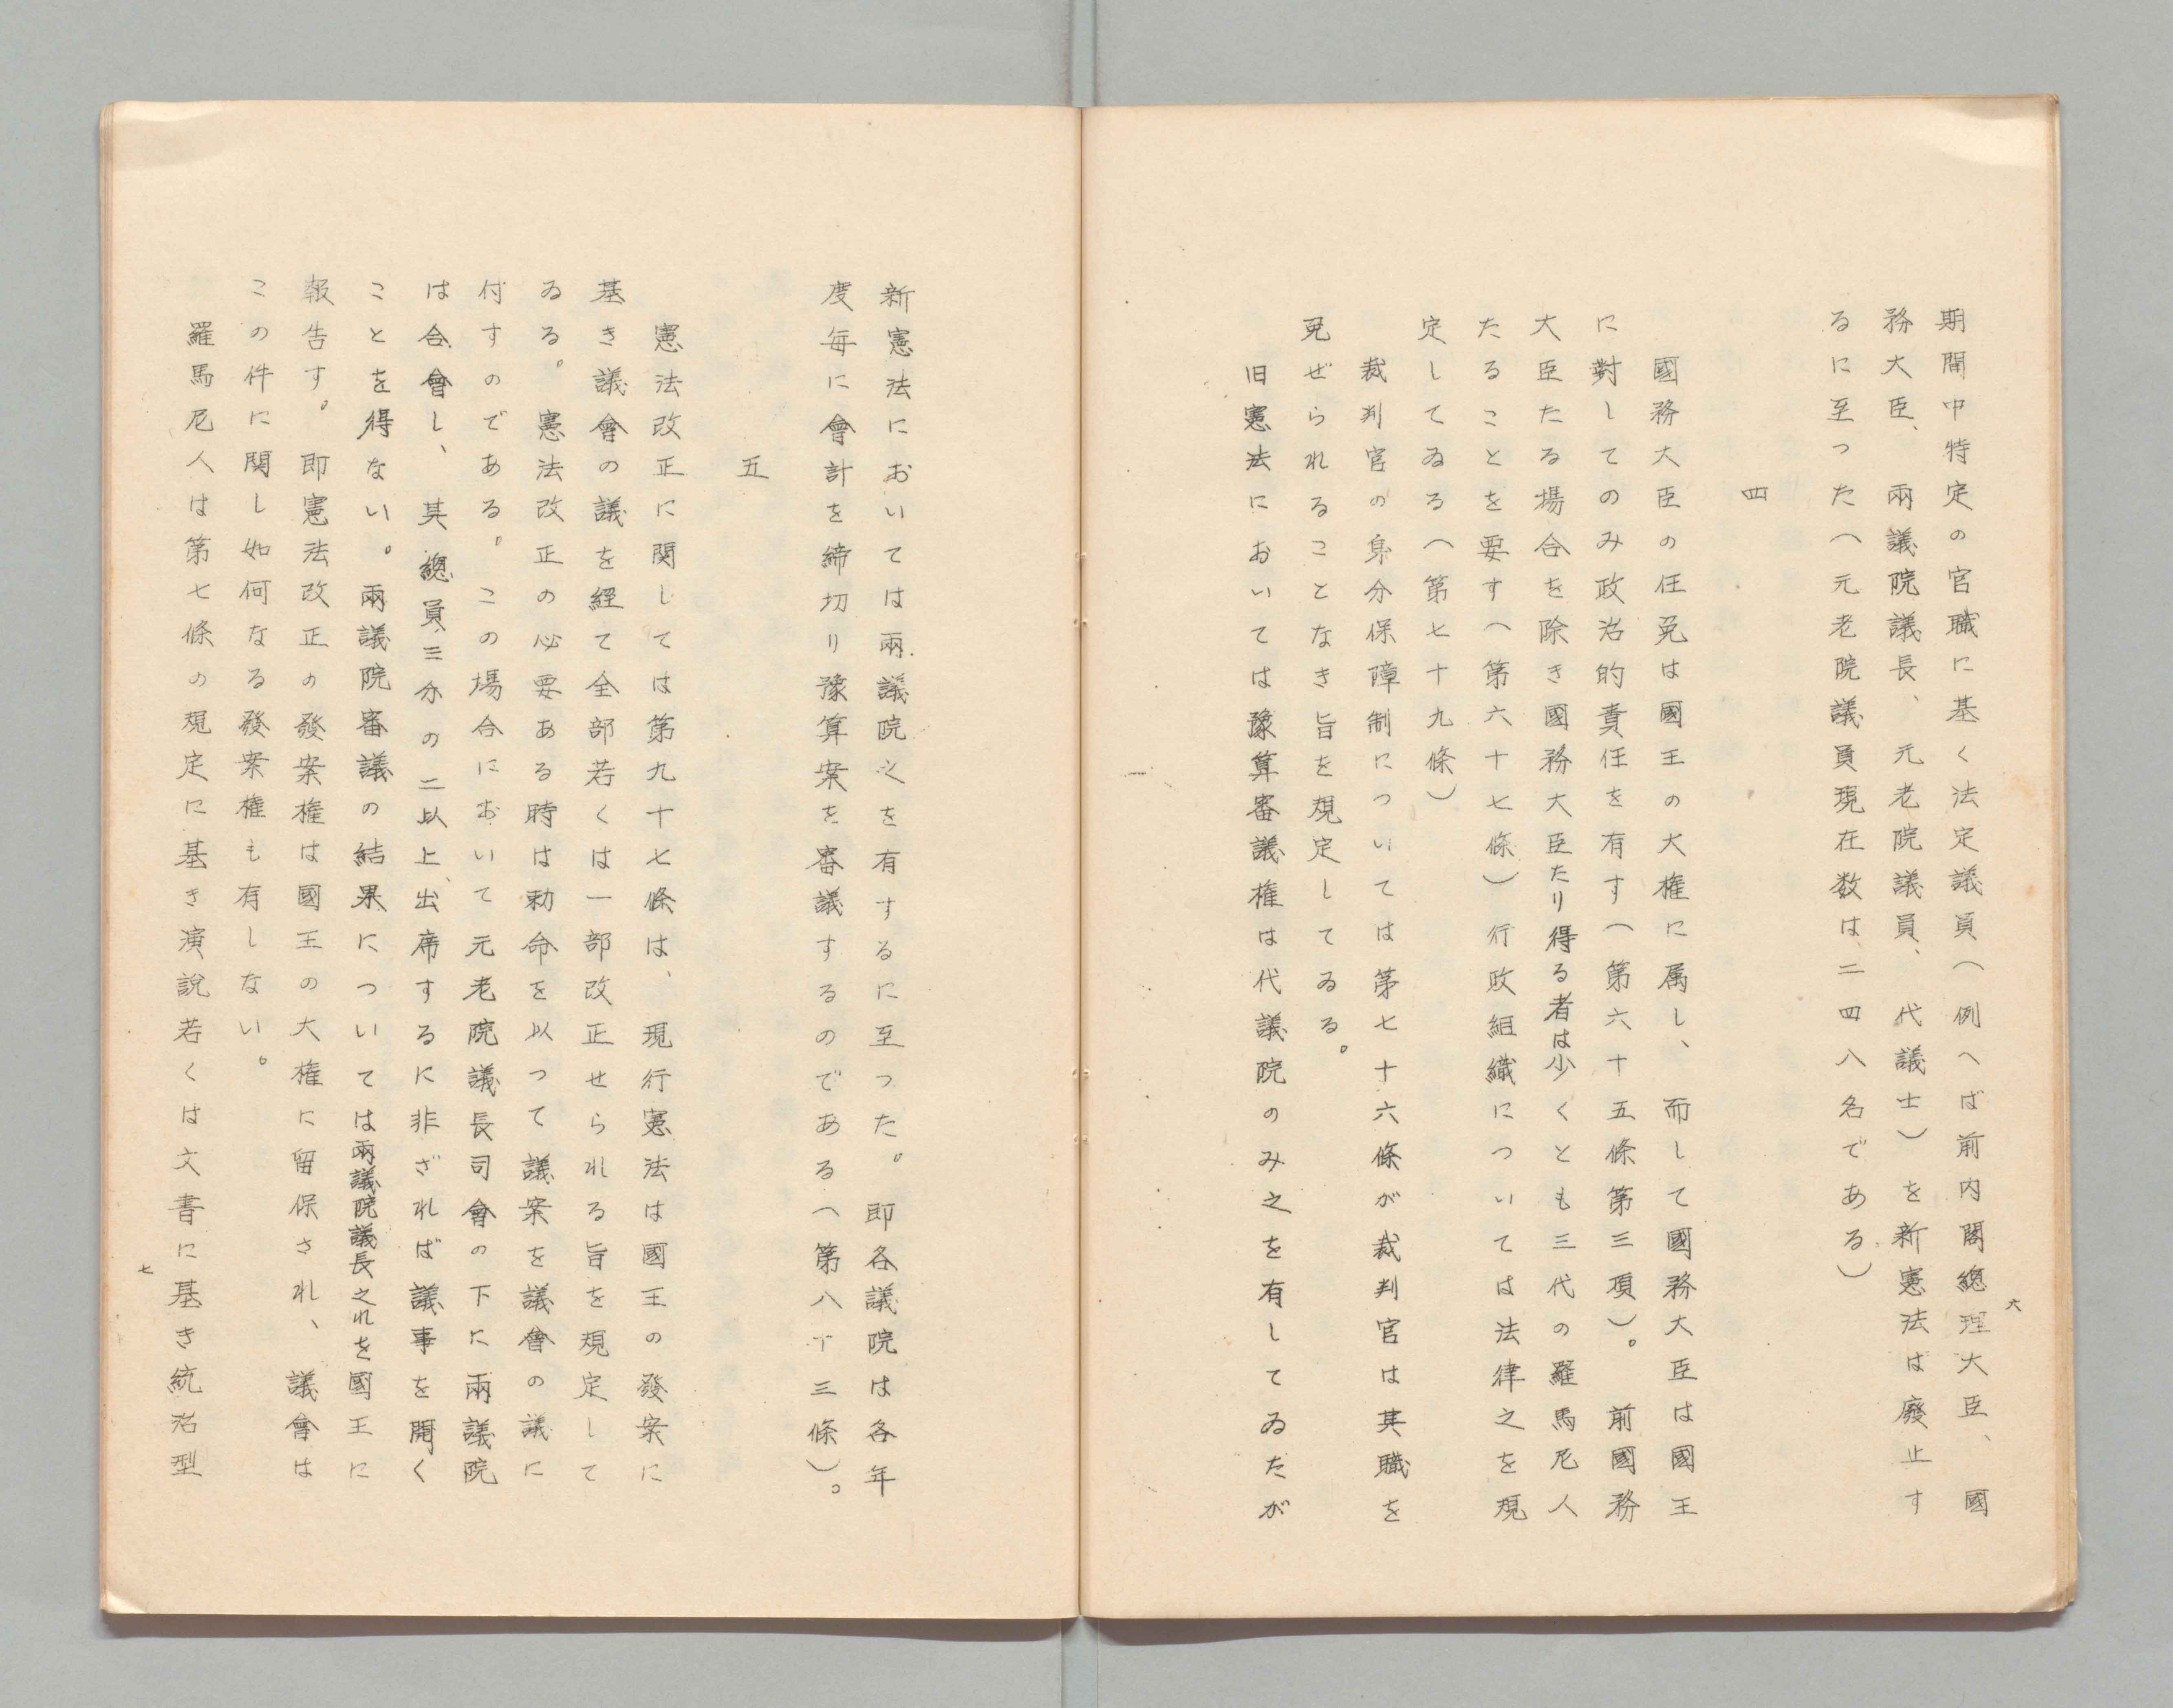 期間中特定の官職に基く法定議員（例へば前内閣總理大臣、國
務大臣、兩議院議長、元老院議員、代議士）を新憲法は廢止す
るに至つた（元老院議員現在数は、二四八名である）
四
國務大臣の任免は國王の大権に属し、而して國務大臣は國王
に對してのみ政治的責任を有す（第六十五條第三項）。前國務
大臣たる場合を除き國務大臣たり得る者は少くとも三代の羅馬尼人
たることを要す（第六十七條）行政組織については法律之を規
定してゐる（第七十九條）
裁判官の身分保障制については第七十六條が裁判官は其職を
免ぜられることなき旨を規定してゐる。
旧憲法においては豫算審議権は代議院のみ之を有してゐたが
六
新憲法においては兩議院之を有するに至つた。即各議院は各年
度毎に會計を締切り豫算案を審議するのである（第八十三條）。
五
憲法改正に関しては第九十七條は、現行憲法は國王の發案に
基き議會の議を経て全部若くは一部改正せられる旨を規定して
ゐる。憲法改正の必要ある時は勅命を以つて議案を議會の議に
付すのである。この場合において元老院議長司會の下に兩議院
は合會し、其總員三分の二以上、出席するに非ざれば議事を開く
ことを得ない。兩議院審議の結果については兩議院議長之れを國王に
報告す。即憲法改正の發案権は國王の大権に留保され、議會は
この件に関し如何なる發案権も有しない。
羅馬尼人は第七條の規定に基き演説若くは文書に基き統治型
七